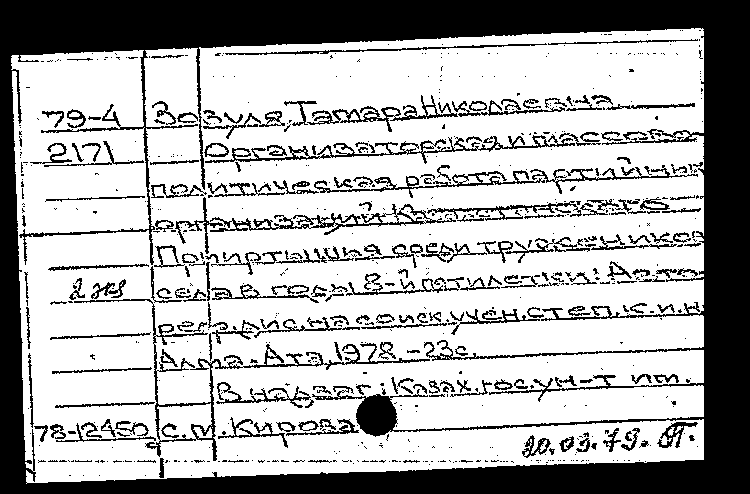 79-4 Зозуля, Тамара Николаевна
2171 Организаторская и массово-
политическая работа партийных
организаций Казахстанского
Прииртышья среди тружеников
2 экз села в годы 8-й пятилетки: Авто-
реф. дис. на соиск. учен. степ. к.и.н.
Алма-Ата, 1978. - 23с.
В надзаг.: Казах. гос. ун-т им.
78-12450 с. м. Кирова
20.03.79. П.